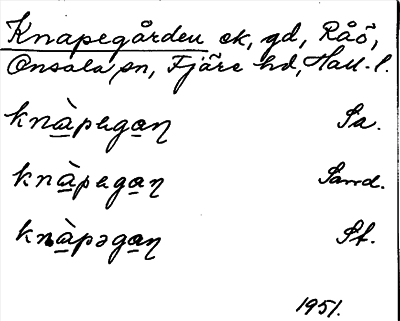 Knapegården ek, gd, Råö,
Onsala sn, Fjäre hd, Hall. l.
knàpegan Sa.
knàpegan Sand.
knàpəgan St.
1951.